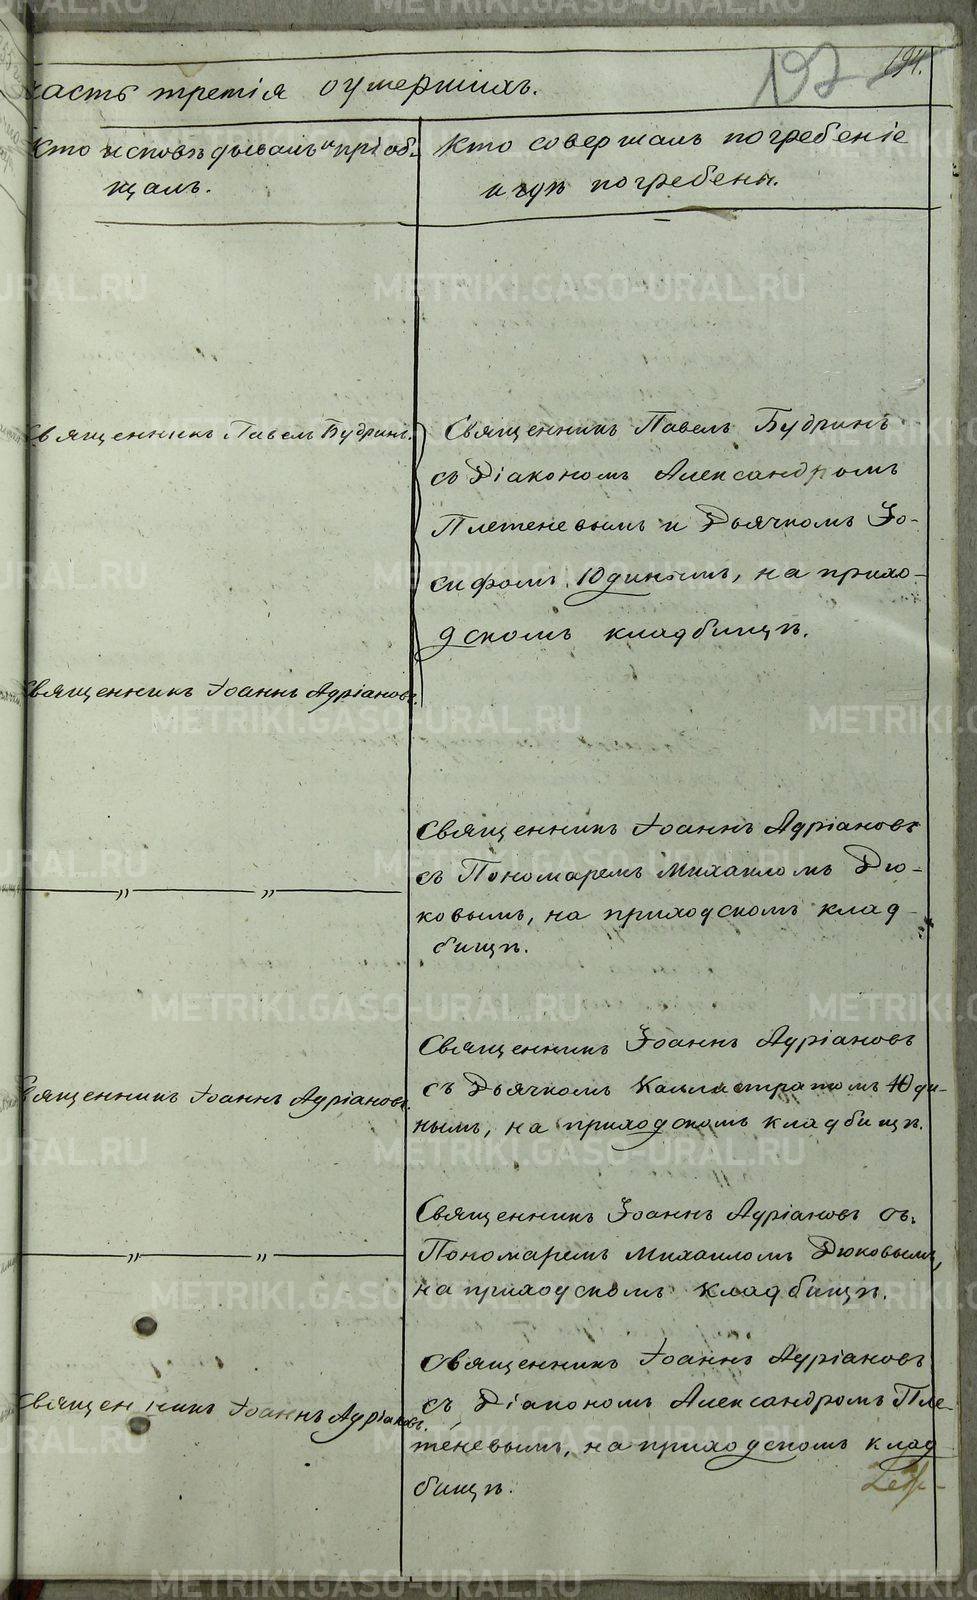 194.
197
часть третія оумершихъ.
Кто исповѣдывалъ и пріоб-
щалъ.
Кто совершалъ погребеніе
и гдѣ погребены.
Священникъ Павелъ Будринъ.
Священникъ Павелъ Будринъ
съ Діакономъ Александромъ
Плетеневымъ и Дьячкомъ Іо-
сифомъ Юдинымъ, на прихо-
дскомъ кладбищѣ.
Священникъ Іоаннъ Адріановъ.
Священникъ Іоаннъ Адріановъ
съ Пономаремъ Михаиломъ Дю-
ковымъ, на приходскомъ клад-
бищѣ.
— „ — „ —
Священникъ Іоаннъ Адріановъ
съ Дьячкомъ Каллистратомъ Юди-
нымъ, на приходскомъ кладбищѣ.
Священникъ Іоаннъ Адріановъ.
Священникъ Іоаннъ Адріановъ съ
Пономаремъ Михаиломъ Дюковымъ,
на приходскомъ кладбищѣ.
— „ — „ —
Священникъ Іоаннъ Адріановъ
съ Діакономъ Александромъ Пле-
теневымъ, на приходскомъ клад
бищѣ.
Священникъ Іоаннъ Адріановъ.
METRIKI.GASO-URAL.RU